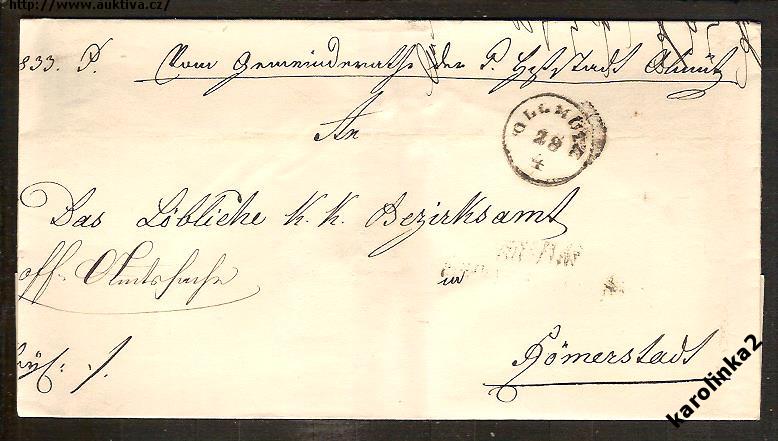 http://www.auktiva.cz/
833. P. Vom Gemeinderathe der k. Hptstadt Olmütz
An
OLLMÜTZ
28
4
Das Löbliche K. K. Bezirksamt
off. Amtssache
in
Römerstadt
karolinka2